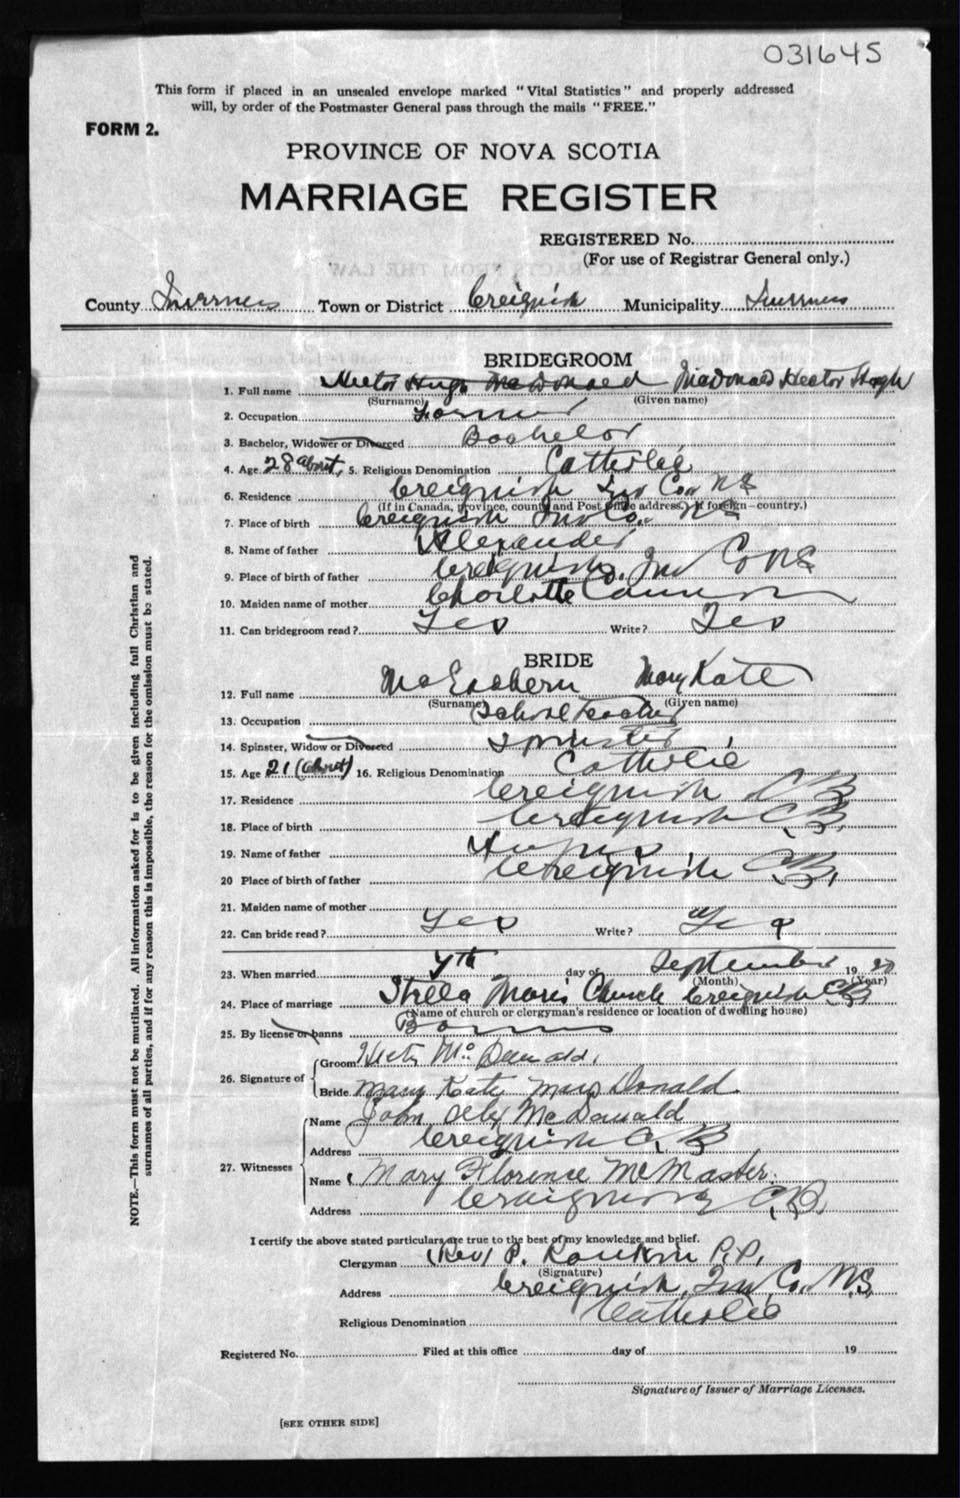 031645
This form if placed in an unsealed envelope marked "Vital Statistics" and properly addressed
will, by order of the Postmaster General pass through the mails "FREE."
FORM 2.
PROVINCE OF NOVA SCOTIA
MARRIAGE REGISTER
REGISTERED No.
(For use of Registrar General only.)
County Inverness Town or District Creignish Municipality Inverness
BRIDEGROOM
1. Full name Hector Hugh McDonald MacDonald Hector Hugh
(Surname) (Given name)
2. Occupation Farmer
3. Bachelor, Widower or Divorced Bachelor
4. Age 28 about, 5. Religious Denomination Catholic
6. Residence Creignish Inv Co., N S
(If in Canada, province, county and Post Office address. If foreign—country.)
7. Place of birth Creignish Inv Co., N S
8. Name of father Alexander
9. Place of birth of father Creignish, Inv Co N S
10. Maiden name of mother Charlotte
11. Can bridegroom read? Yes Write? Yes
BRIDE
12. Full name McEachern Mary Kate
(Surname) (Given name)
13. Occupation School Teacher
14. Spinster, Widow or Divorced Spinster
15. Age 21 (about) 16. Religious Denomination Catholic
17. Residence Creignish C B
18. Place of birth Creignish C B.
19. Name of father
20 Place of birth of father Creignish C B.
21. Maiden name of mother
22. Can bride read? Yes Write? Yes
23. When married 7th day of September 19 20
(Month) (Year)
24. Place of marriage Stella Maris Church Creignish C B
(Name of church or clergyman's residence or location of dwelling house)
25. By license or banns Banns
26. Signature of Groom McDonald.
Bride Mary Kate MacDonald
27. Witnesses Name John Alex McDonald
Address Creignish C. B
Name Mary Florence McMaster.
Address Craignish C.B.
I certify the above stated particulars are true to the best of my knowledge and belief.
Clergyman (Rev) P. Rankin P.P.
(Signature)
Address Creignish, Inv. Co. N.S.
Religious Denomination Catholic
Registered No. Filed at this office day of 19
Signature of Issuer of Marriage Licenses.
[SEE OTHER SIDE]
NOTE.—This form must not be mutilated. All information asked for is to be given including full Christian and
surnames of all parties, and if for any reason this is impossible, the reason for the omission must be stated.